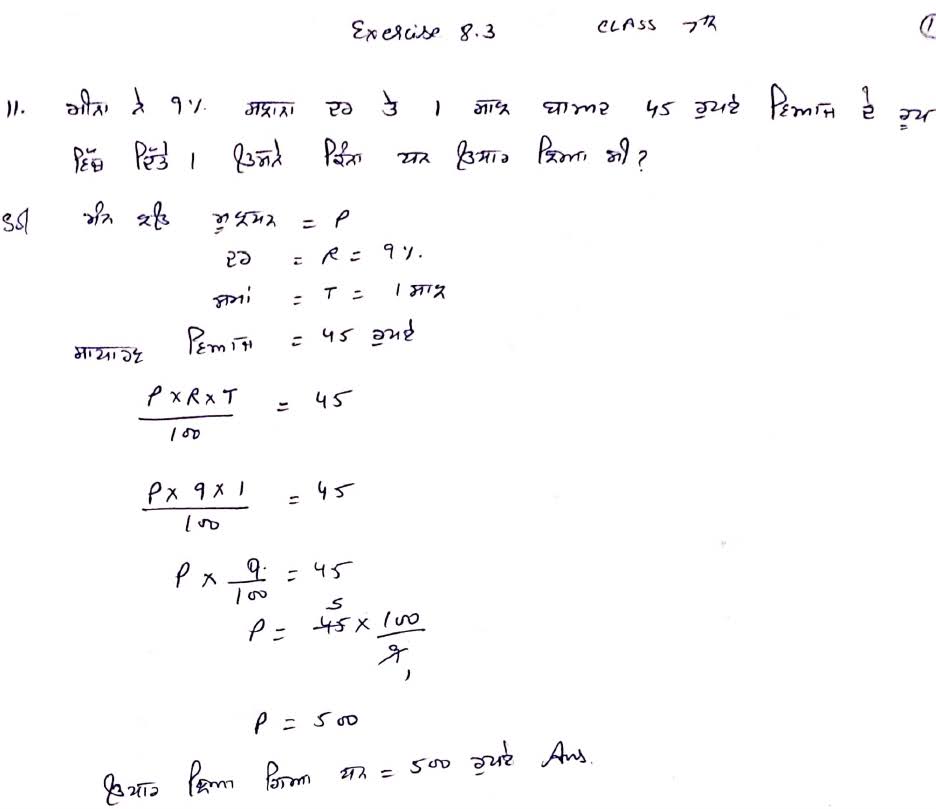 Exercise 8.3 CLASS 7th 1
11. ਗੀਤਾ ਨੇ 9% ਸਲਾਨਾ ਦਰ ਤੇ 1 ਸਾਲ ਬਾਅਦ 45 ਰੁਪਏ ਵਿਆਜ ਦੇ ਰੂਪ
ਵਿੱਚ ਦਿੱਤੇ । ਉਸਨੇ ਕਿੰਨਾ ਧਨ ਉਧਾਰ ਲਿਆ ਸੀ ?
Sol ਮੰਨ ਲਉ ਮੂਲਧਨ = P
ਦਰ = R = 9%.
ਸਮਾਂ = T = 1 ਸਾਲ
ਸਾਧਾਰਨ ਵਿਆਜ = 45 ਰੁਪਏ
P × R × T / 100 = 45
P × 9 × 1 / 100 = 45
P × 9 / 100 = 45
P = 45 5 × 100 / 9 1
P = 500
ਉਧਾਰ ਲਿਆ ਗਿਆ ਧਨ = 500 ਰੁਪਏ Ans.